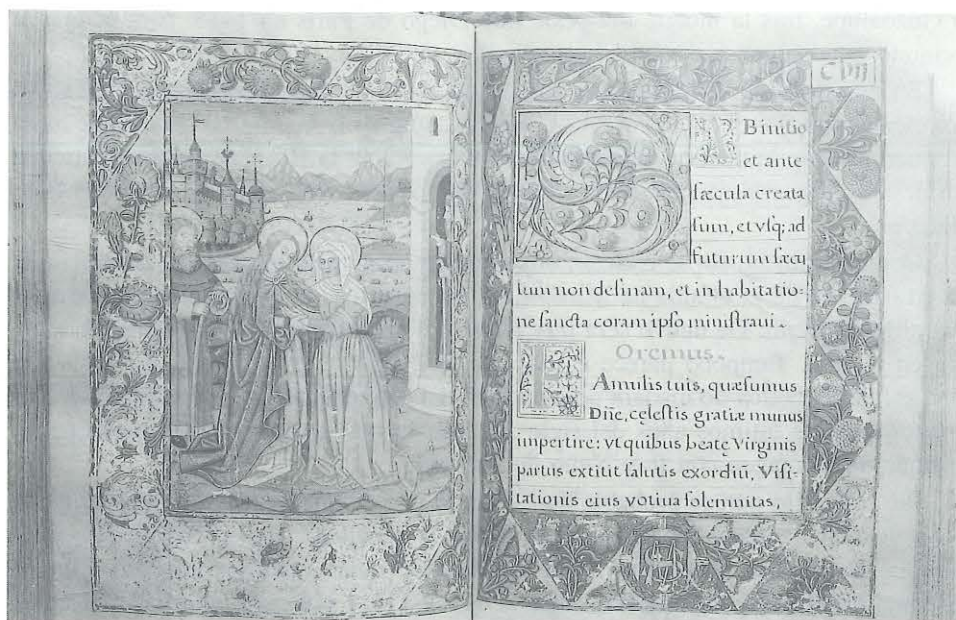 C VII
AB initio
et ante
sæcula creata
sum, et vsq; ad
futurum sæcu
lum non desinam, et in habitatio=
ne sancta coram ipso ministraui.
Oremus.
FAmulis tuis, quæsumus
Dñe, cęlestis gratiæ munus
impertire: vt quibus beatę Virginis
partus extitit salutis exordiũ, Visi=
tationis eius votiua solemnitas,